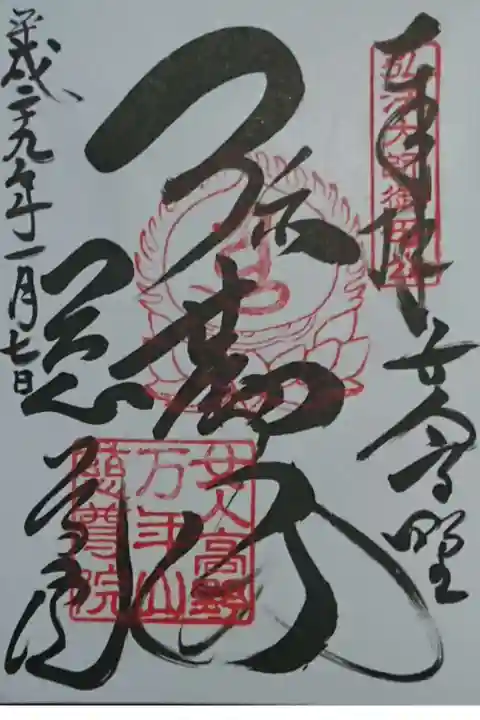 奉拝 女人高野
弘法大師御母公
弥勒佛
女人高野
万年山
慈尊院
慈尊院
平成二十九年一月七日